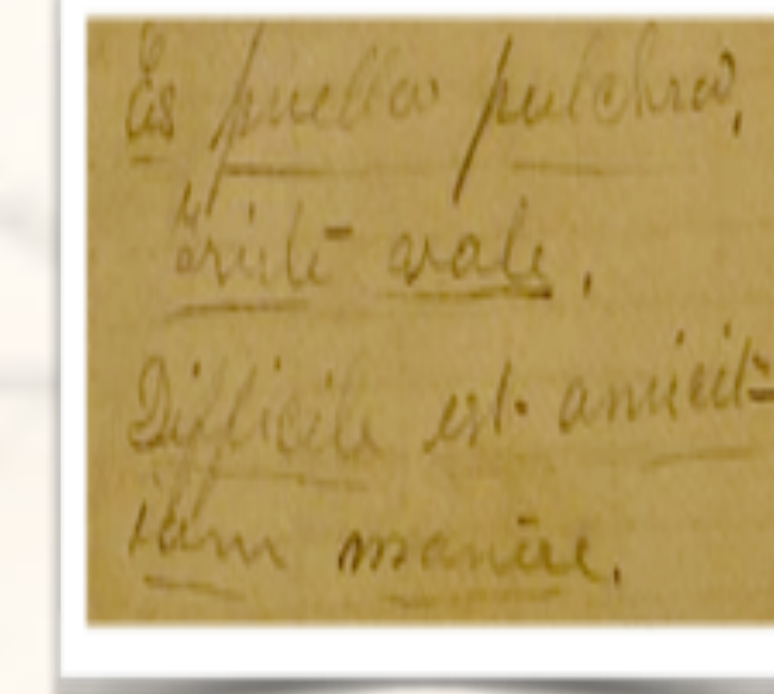 Es puella pulchra,
vale.
Difficile est amicit-
iam manere.